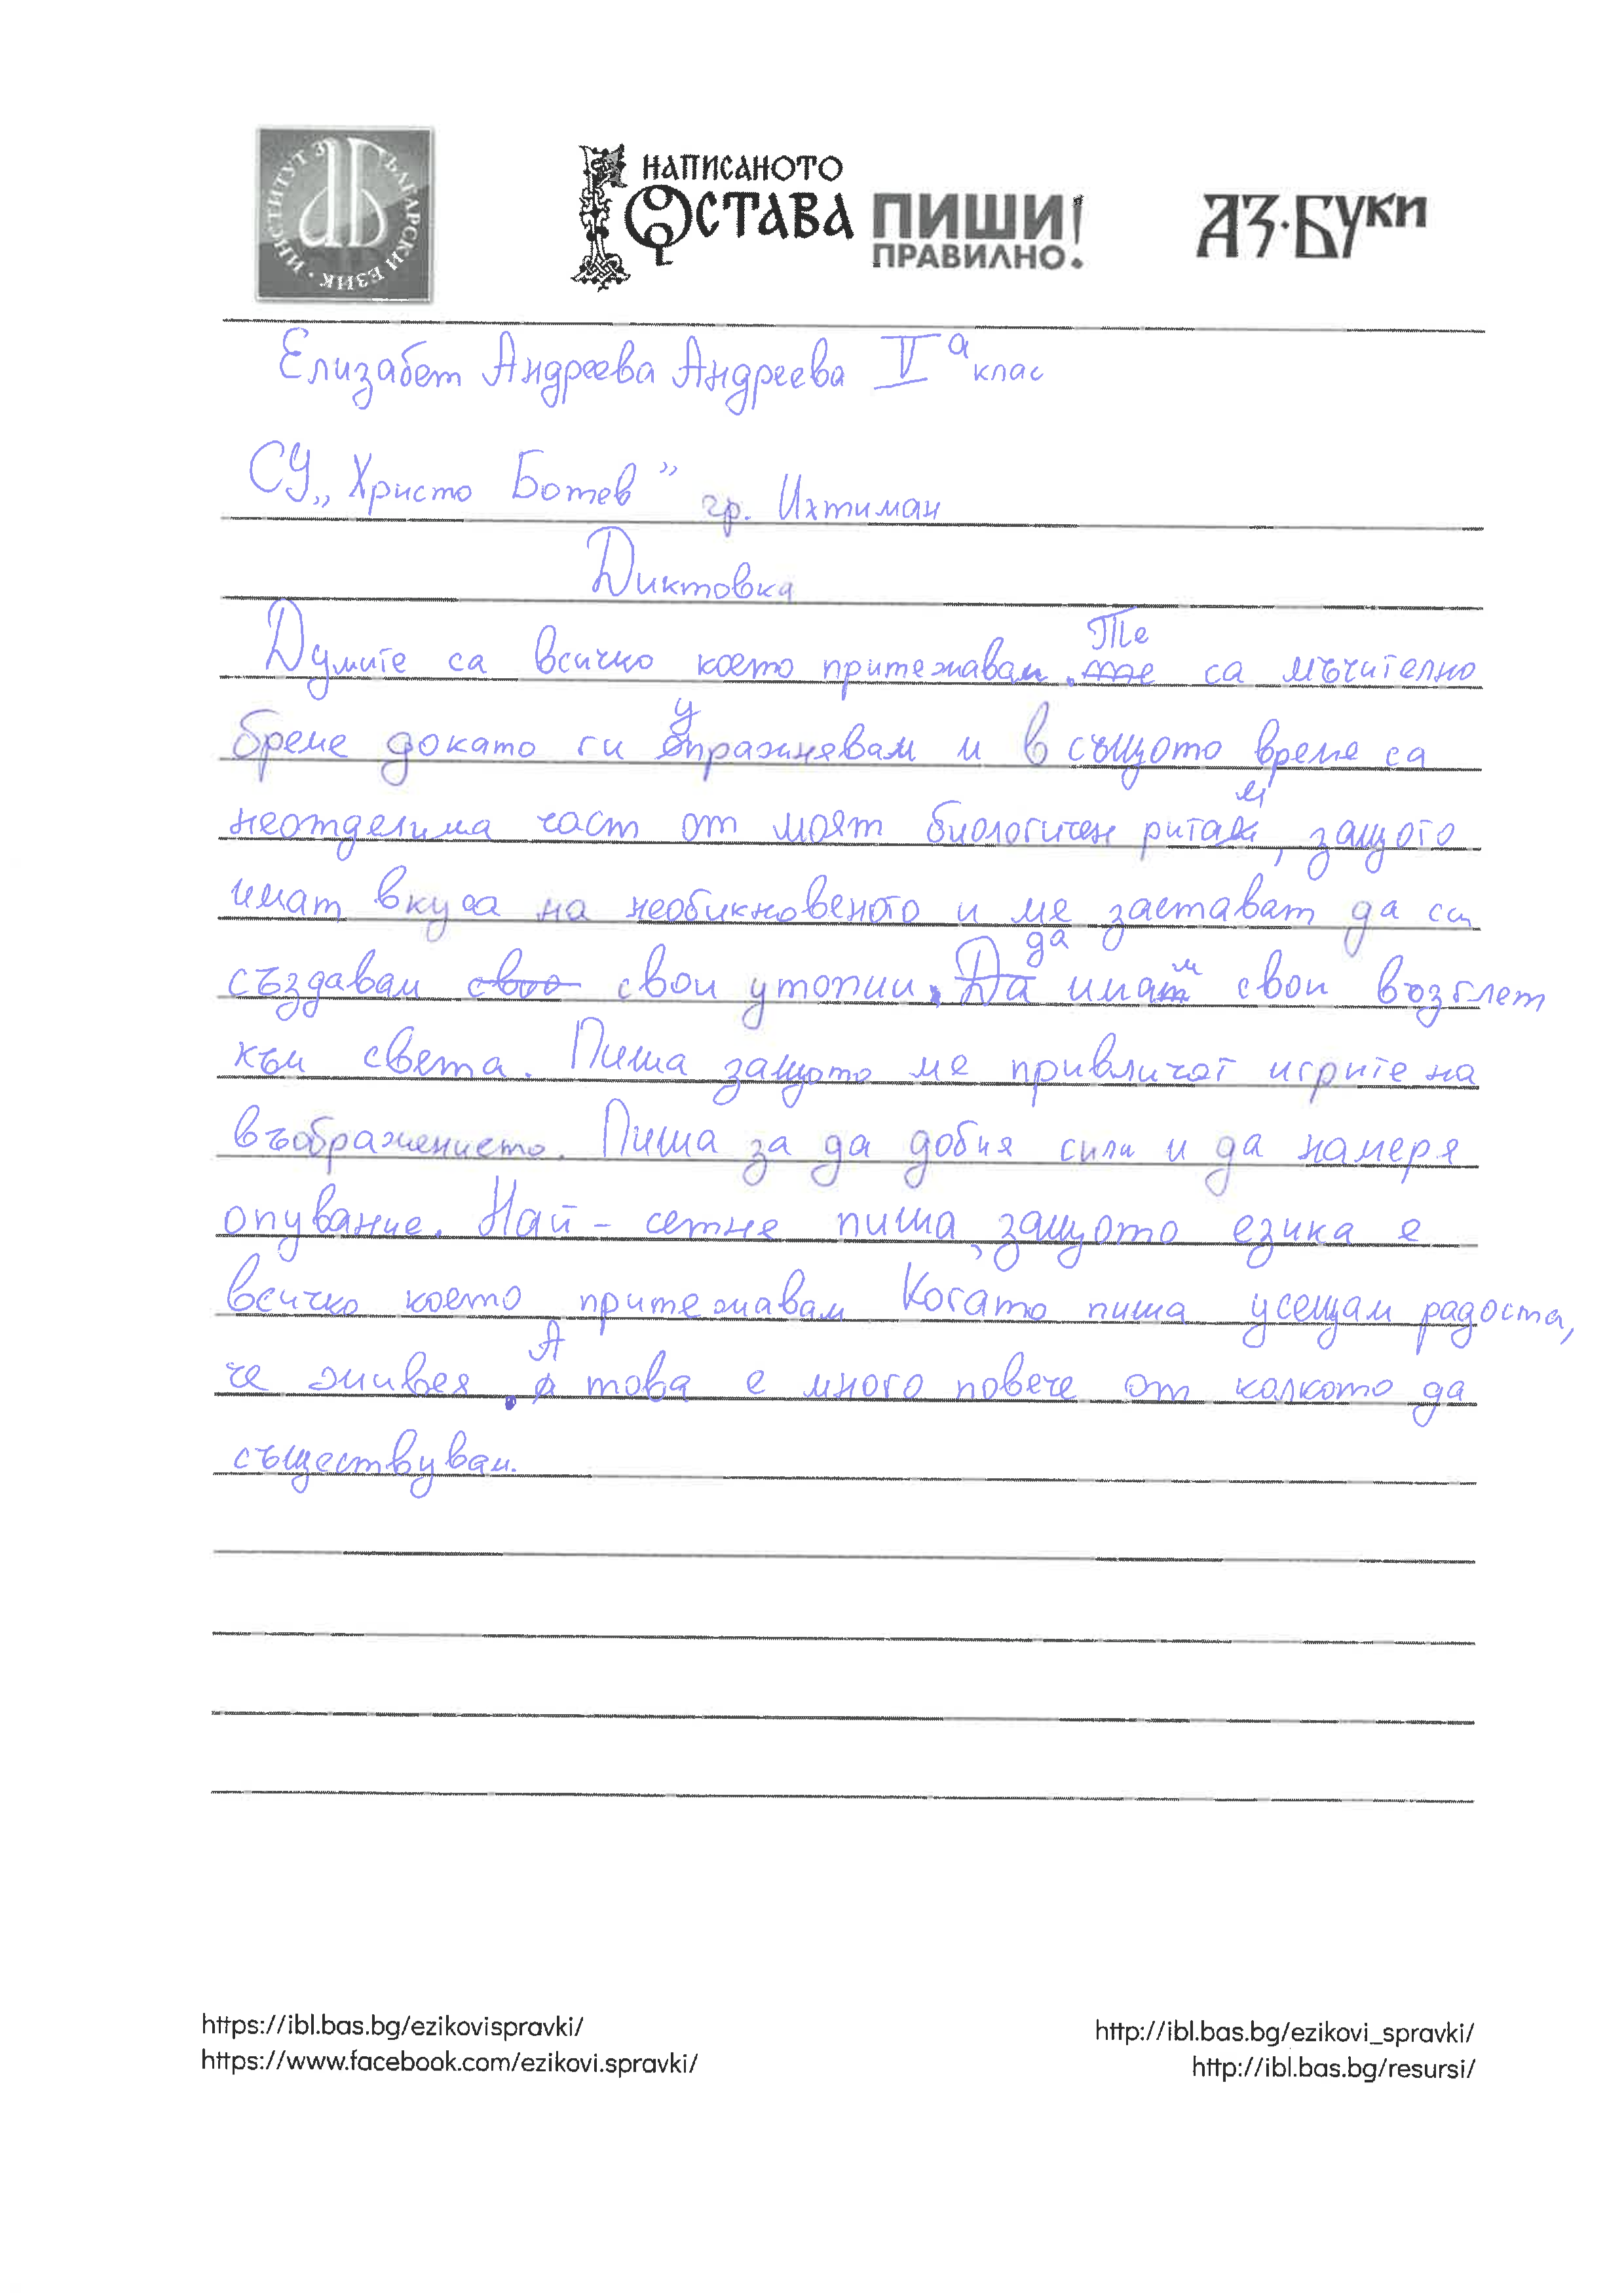 ИНСТИТУТ ЗА БЪЛГАРСКИ ЕЗИК
НАПИСАНОТО
ОСТАВА
ПИШИ!
ПРАВИЛНО.
АЗ·БУКИ
Елизабет Андреева Андреева V а клас
СУ „Христо Ботев" гр. Ихтиман
Диктовка
Думите са всичко което притежавам. Те са мъчително
бреме докато ги упражнявам и в същото време са
неотделима част от моят биологичен ритъм, защото
имат вкуса на необикновеното и ме заставят да си
създавам свои утопии, да имам свои возглет
към света. Пиша защото ме привличат игрите на
въображението. Пиша за да добия сили и да намеря
опувание. Най-сетне пиша, защото езика е
всичко което притежавам Когато пиша усещам радоста,
че живея. А това е много повече от колкото да
съществувам.
https://ibl.bas.bg/ezikovispravki/
https://www.facebook.com/ezikovi.spravki/
http://ibl.bas.bg/ezikovi_spravki/
http://ibl.bas.bg/resursi/